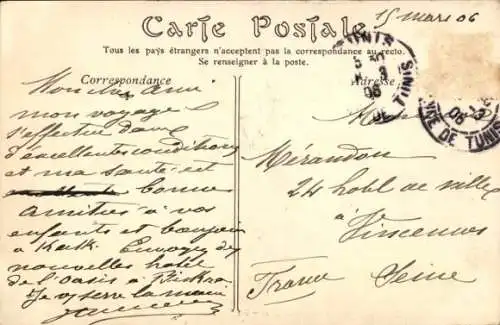 15 mars 06
Carte Postale
Tous les pays étrangers n'acceptent pas la correspondance au recto.
Se renseigner à la poste.
Correspondance
Adresse
TUNIS
5 30
3
06
DE TUNIS
06
DE TUNIS
Mon cher ami
mon voyage
s'effectue dans
d'excellentes conditions
et ma santé est
bonne
amitiés à vos
enfants et bonjour
à Envoyez des
nouvelles hotel
de l'Oasis à Biskra
Je vs serre la main
Monsieur
Mérandon
24 hotel de ville
à Vincennes
France Seine